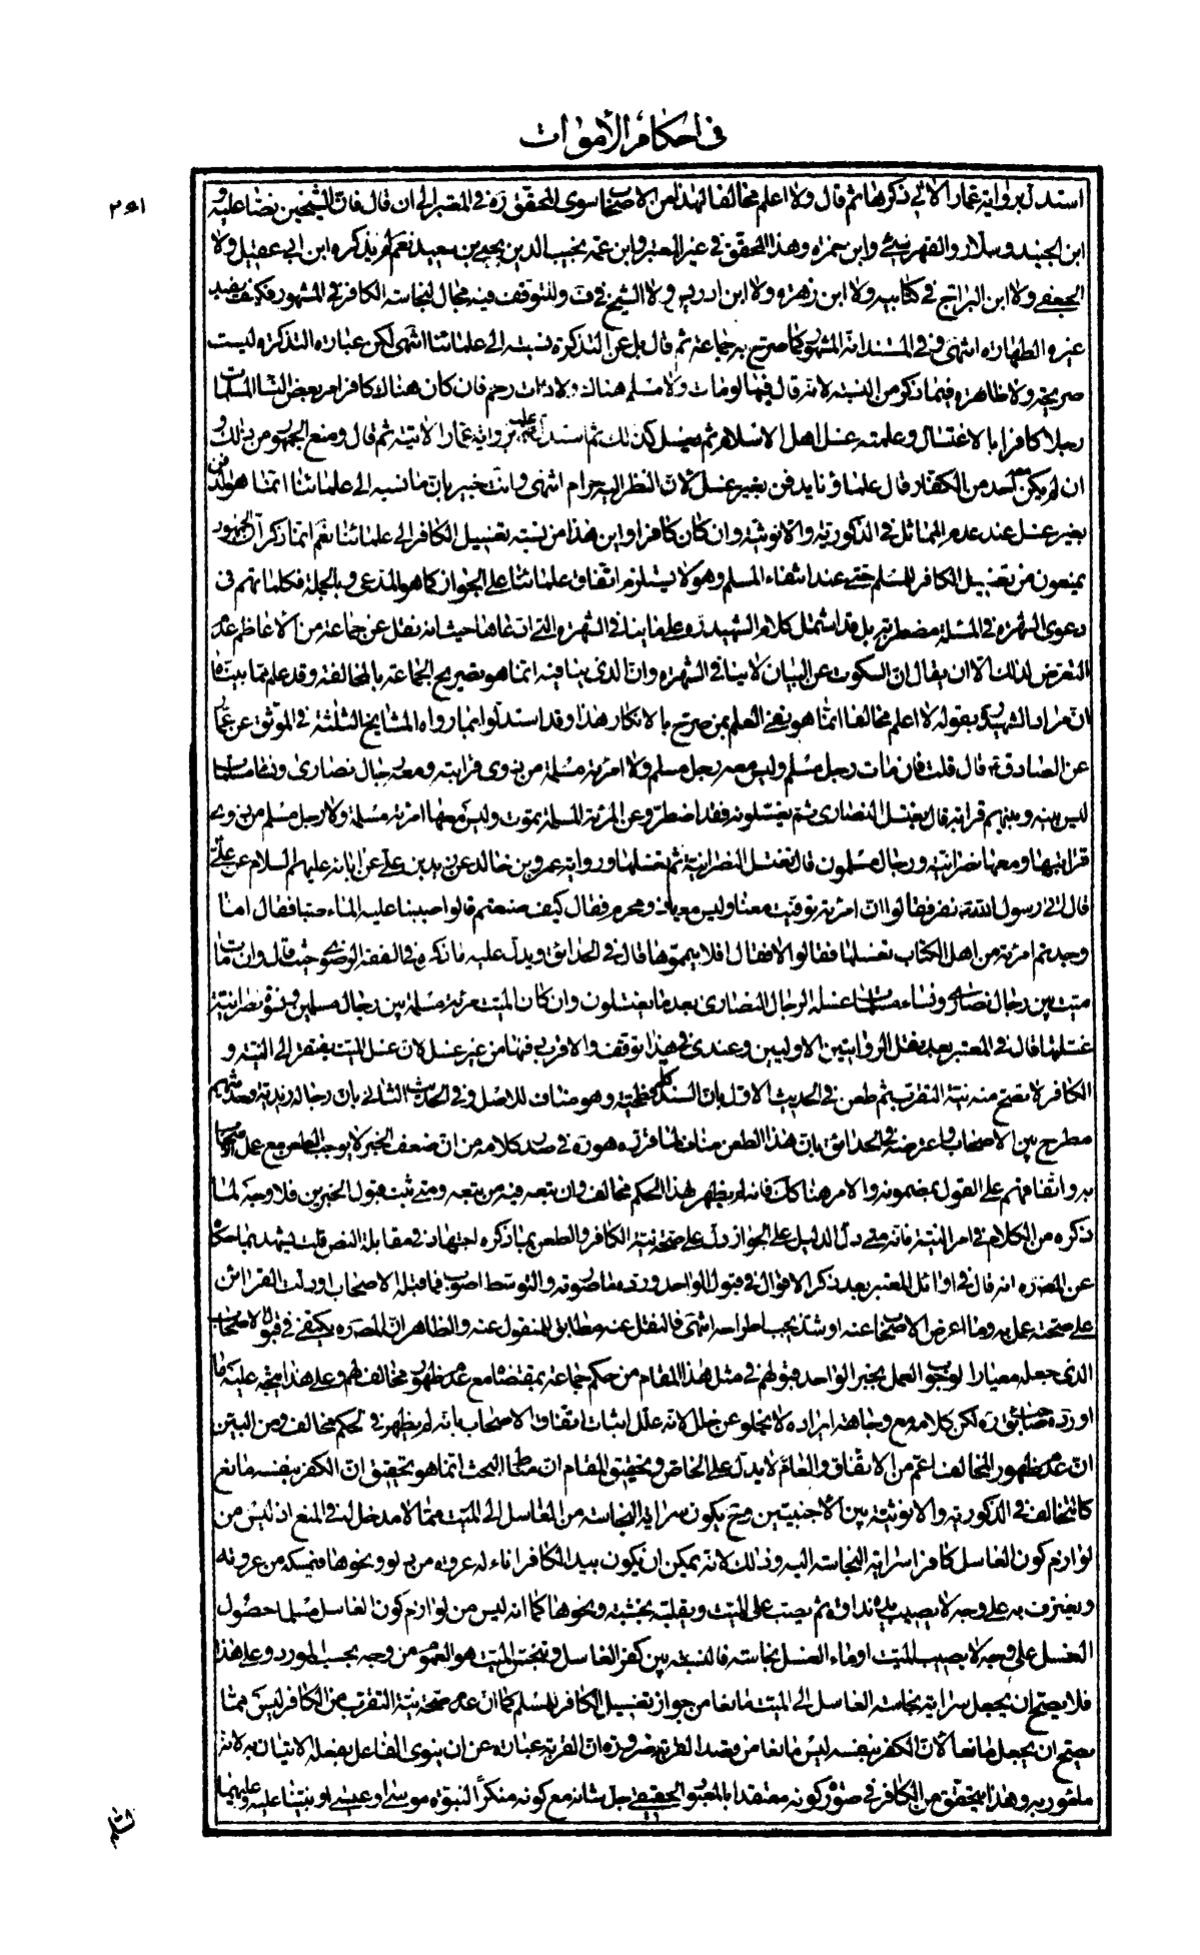 في احكام الأموات
٢٥١
استدل برواية عمار الاتي ذكرها ثم قال ولا اعلم مخالفا لهذا من الاصحاب سوى المحقق ره في المعتبر الى ان قال فان الشيخين نصا عليه و
ابن الجنيد وسلار والصهرشتي وابن حمزة وهذا المحقق في غير المعتبر وابن عمه نجيب الدين يحيى بن سعيد نعم لم يذكره ابن ابي عقيل ولا
الجعفي ولا ابن البراج في كتابيه ولا ابن زهرة ولا ابن ادريس ولا الشيخ في ف وللتوقف فيه مجال لنجاسة الكافر في المشهور فكيف يفيد
غيره الطهارة انتهى وفي المستند انه المشهور كما صرح به جماعة ثم قال بل عن التذكرة نسبته الى علمائنا انتهى لكن عبارة التذكرة ليست
صريحة ولا ظاهرة فيما ذكر من النسبة لانه قال فيها لو مات ولا مسلم هناك ولا ذات رحم فان كان هناك كافر امر بعض النساء المسلمات
رجلا كافرا بالاغتسال وعلمته غسل اهل الاسلام ثم يغسل كذلك ثم استدل عليه برواية عمار الاتية ثم قال ومنع الجمهور من ذلك و
ان لم يكن احد من الكفار قال علماؤنا يدفن بغير غسل لان النظر اليه حرام انتهى وانت خبير بان ما نسبه الى علمائنا انما هو الدفن
بغير غسل عند عدم المماثل في الذكورية والانوثية وان كان كافرا واين هذا من نسبة تغسيل الكافر الى علمائنا نعم انما ذكر ان الجمهور
يمنعون من تغسيل الكافر للمسلم حتى عند انتفاء المسلم وهو لا يستلزم اتفاق علمائنا على الجواز كما هو المدعى وبالجملة فكلماتهم في
دعوى الشهرة في المسئلة مضطربة بل قد اشتمل كلام الشهيد ره على ما ينافي الشهرة التي ادعاها حيث انه نقل عن جماعة من الاعاظم عدم
التعرض لذلك الا ان يقال ان السكوت عن البيان لا ينافي الشهرة وان الذي ينافيه انما هو تصريح الجماعة بالمخالفة وقد علم مما بيناه
ان مراد الشهيد ره بقوله لا اعلم مخالفا انما هو نفي العلم بمن صرح بالانكار هذا وقد استدلوا بما رواه المشايخ الثلثة في الموثق عن عمار
عن الصادق ع قال قلت فان مات رجل مسلم وليس معه رجل مسلم ولا امرئة مسلمة من ذوي قرابته ومعه رجال نصارى ونساء مسلمات
ليس بينه وبينهم قرابة قال يغتسل النصارى ثم يغسلونه فقد اضطر وعن المرئة المسلمة تموت وليس معها امرئة مسلمة ولا رجل مسلم من ذوي
قرابتها ومعها نصرانية ورجال مسلمون قال تغتسل النصرانية ثم تغسلها ورواية عمرو بن خالد عن زيد بن علي عن ابائه عليهم السلام عن علي ع
قال اتى رسول الله ص نفر فقالوا ان امرئة توفيت معنا وليس معها ذو محرم فقال كيف صنعتم قالوا صببنا عليها الماء صبا فقال اما
وجدتم امرئة من اهل الكتاب تغسلها فقالوا لا فقال افلا يمموها قال في الحدائق ويدل عليه ما ذكره في الفقه الرضوي حيث قال وان مات
ميت بين رجال نصارى ونساء مسلمات غسله الرجال النصارى بعد ما يغتسلون وان كان الميت مرئة مسلمة بين رجال مسلمين ونسوة نصرانية
غسلتها قال في المعتبر بعد نقل الروايتين الاوليين وعندي في هذا توقف والاقرب دفنها من غير غسل لان غسل الميت يفتقر الى النية و
الكافر لا تصح منه نية التقرب ثم طعن في الحديث الاول بان السند كله فطحية وهو مناف للاصل وفي الحديث الثاني بان رجاله زيدية وحديثهم
مطرح بين الاصحاب واعترضه في الحدائق بان هذا الطعن مناف لما قرره هو ره في صدر كلامه من ان ضعف الخبر لا يوجب الطعن مع عمل الاصحاب
به واتفاقهم على القول بمضمونه والامر هنا كك فانه لم يظهر لهذا الحكم مخالف وان تبعه فيه من تبعه ومتى ثبت قبول الخبرين فلا وجه لما
ذكره من الكلام في امر النية فانه متى دل الدليل على الجواز دل على صحة نية الكافر والطعن بما ذكره اجتهاد في مقابلة النص قلت يشهد بما حكاه
عن المصنف ره انه قال في اوائل المعتبر بعد ذكر الاقوال في قبول الواحد ورده ما صورته والتوسط اصوب فما قبله الاصحاب او دلت القرائن
على صحته عمل به وما اعرض الاصحاب عنه او شذ يجب اطراحه انتهى فالنقل عنه مطابق للمنقول عنه والظاهر ان المصنف ره يكتفي في قبول الاصحاب
الذي جعله معيارا لوجوب العمل بخبر الواحد قبولهم في مثل هذا المقام من حكم جماعة بمقتضاه مع عدم ظهور مخالف لهم وعلى هذا يتجه عليه ما
اورده صاحب ئق ره لكن كلامه مع وجاهة ايراده لا يخلو عن خلل لانه علل اثبات اتفاق الاصحاب بانه لم يظهر في الحكم مخالف ومن البين
ان عدم ظهور المخالف اعم من الاتفاق والعام لا يدل على الخاص وتحقيق المقام ان مطمح البحث انما هو تحقيق ان الكفر بنفسه مانع
كالتخالف في الذكورية والانوثية بين الاجنبيين وح يكون سراية النجاسة من الغاسل الى الميت مما لا مدخل له في المنع اذ ليس من
لوازم كون الغاسل كافرا سراية النجاسة اليه وذلك لانه يمكن ان يكون بيد الكافر اناء له عروة من دلو ونحوها فيمسكه من عروته
ويغترف به على وجه لا يصيب يده نداوة ثم يصب على الميت ويقلبه بخشبة ونحوها كما انه ليس من لوازم كون الغاسل مسلما حصول
الغسل على وجه لا يصيب الميت او ماء الغسل نجاسة فالنسبة بين كفر الغاسل وتنجس الميت هو العموم من وجه بحسب المورد وعلى هذا
فلا يصح ان يجعل سراية نجاسة الغاسل الى الميت مانعا من جواز تغسيل الكافر للمسلم كما ان عدم صحة نية التقرب من الكافر ليس مما
يصح ان يجعل مانعا لان الكفر بنفسه ليس مانعا من قصد القربة ضرورة ان القربة عبارة عن ان ينوي الفاعل بفعله الاتيان به لانه
مامور به وهذا يتحقق من الكافر في صورة كونه معتقدا بالمعبود الحقيقي جل شانه مع كونه منكرا لنبوة موسى او عيسى او نبينا عليه وعليهما
السلم